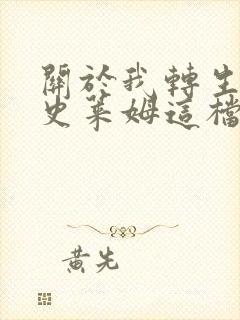 關於我轉生
史萊姆這檔
黃先